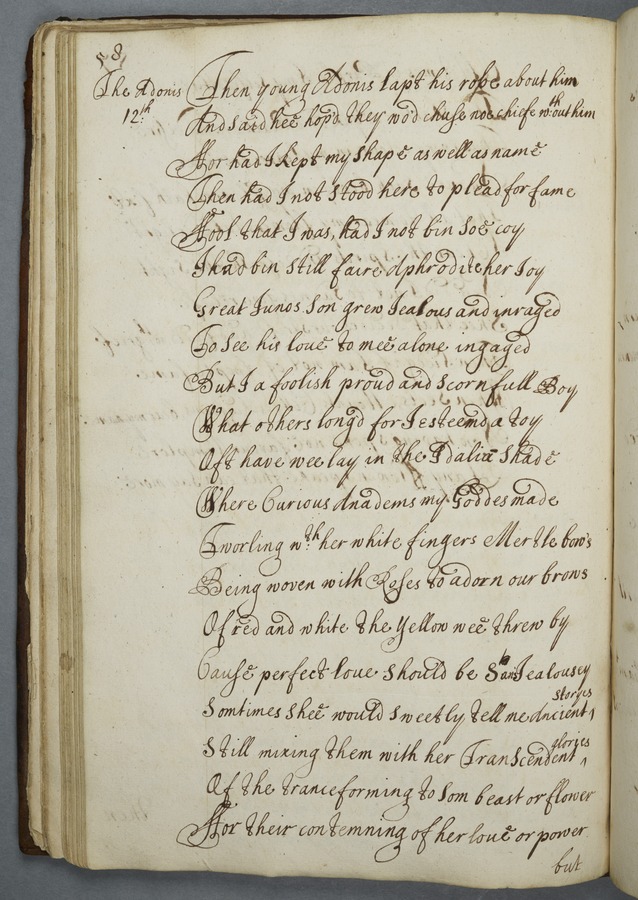 58
The Adonis
12th
Then young Adonis lapt his robe about him
And said hee hop'd they wo'd chuse noe chiefe wthout him
ffor had I kept my shape as well as name
Then had I not stood here to plead for fame
ffool that I was, had I not bin soe coy
I had bin still faire Aphrodite her Joy
Great Junos son grew Jealous and inraged
To see his love to mee alone ingaged
But I a foolish proud and scornfull Boy
What others long'd for I esteem'd a toy
Oft have wee lay in the Idalia shade
Where Curious Anadems my Goddes made
Tworling wth her white fingers Mertle bow's
Being woven with Roses to adorn our brows
Of red and white the yellow wee threw by
Cause perfect love should be Jealousey
Somtimes shee would sweetly tell me Ancient stories
Still mixing them with her Transcendent glories
Of the tranceforming to som beast or flower
ffor their contemning of her love or power
but